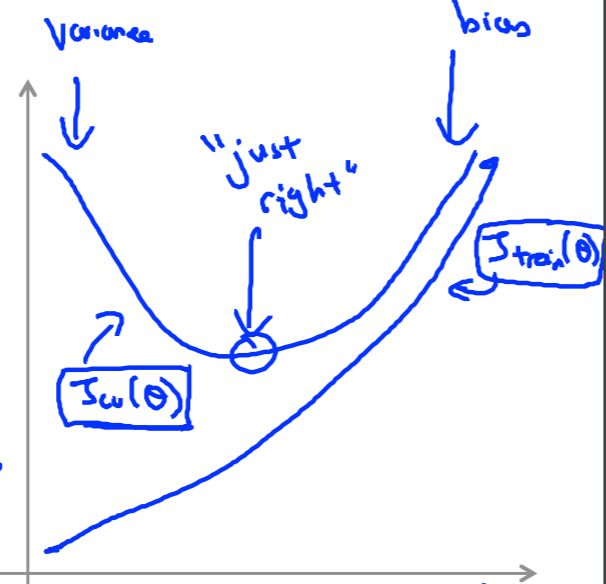 Variance
bias
"just
right"
J train (θ)
J cv (θ)